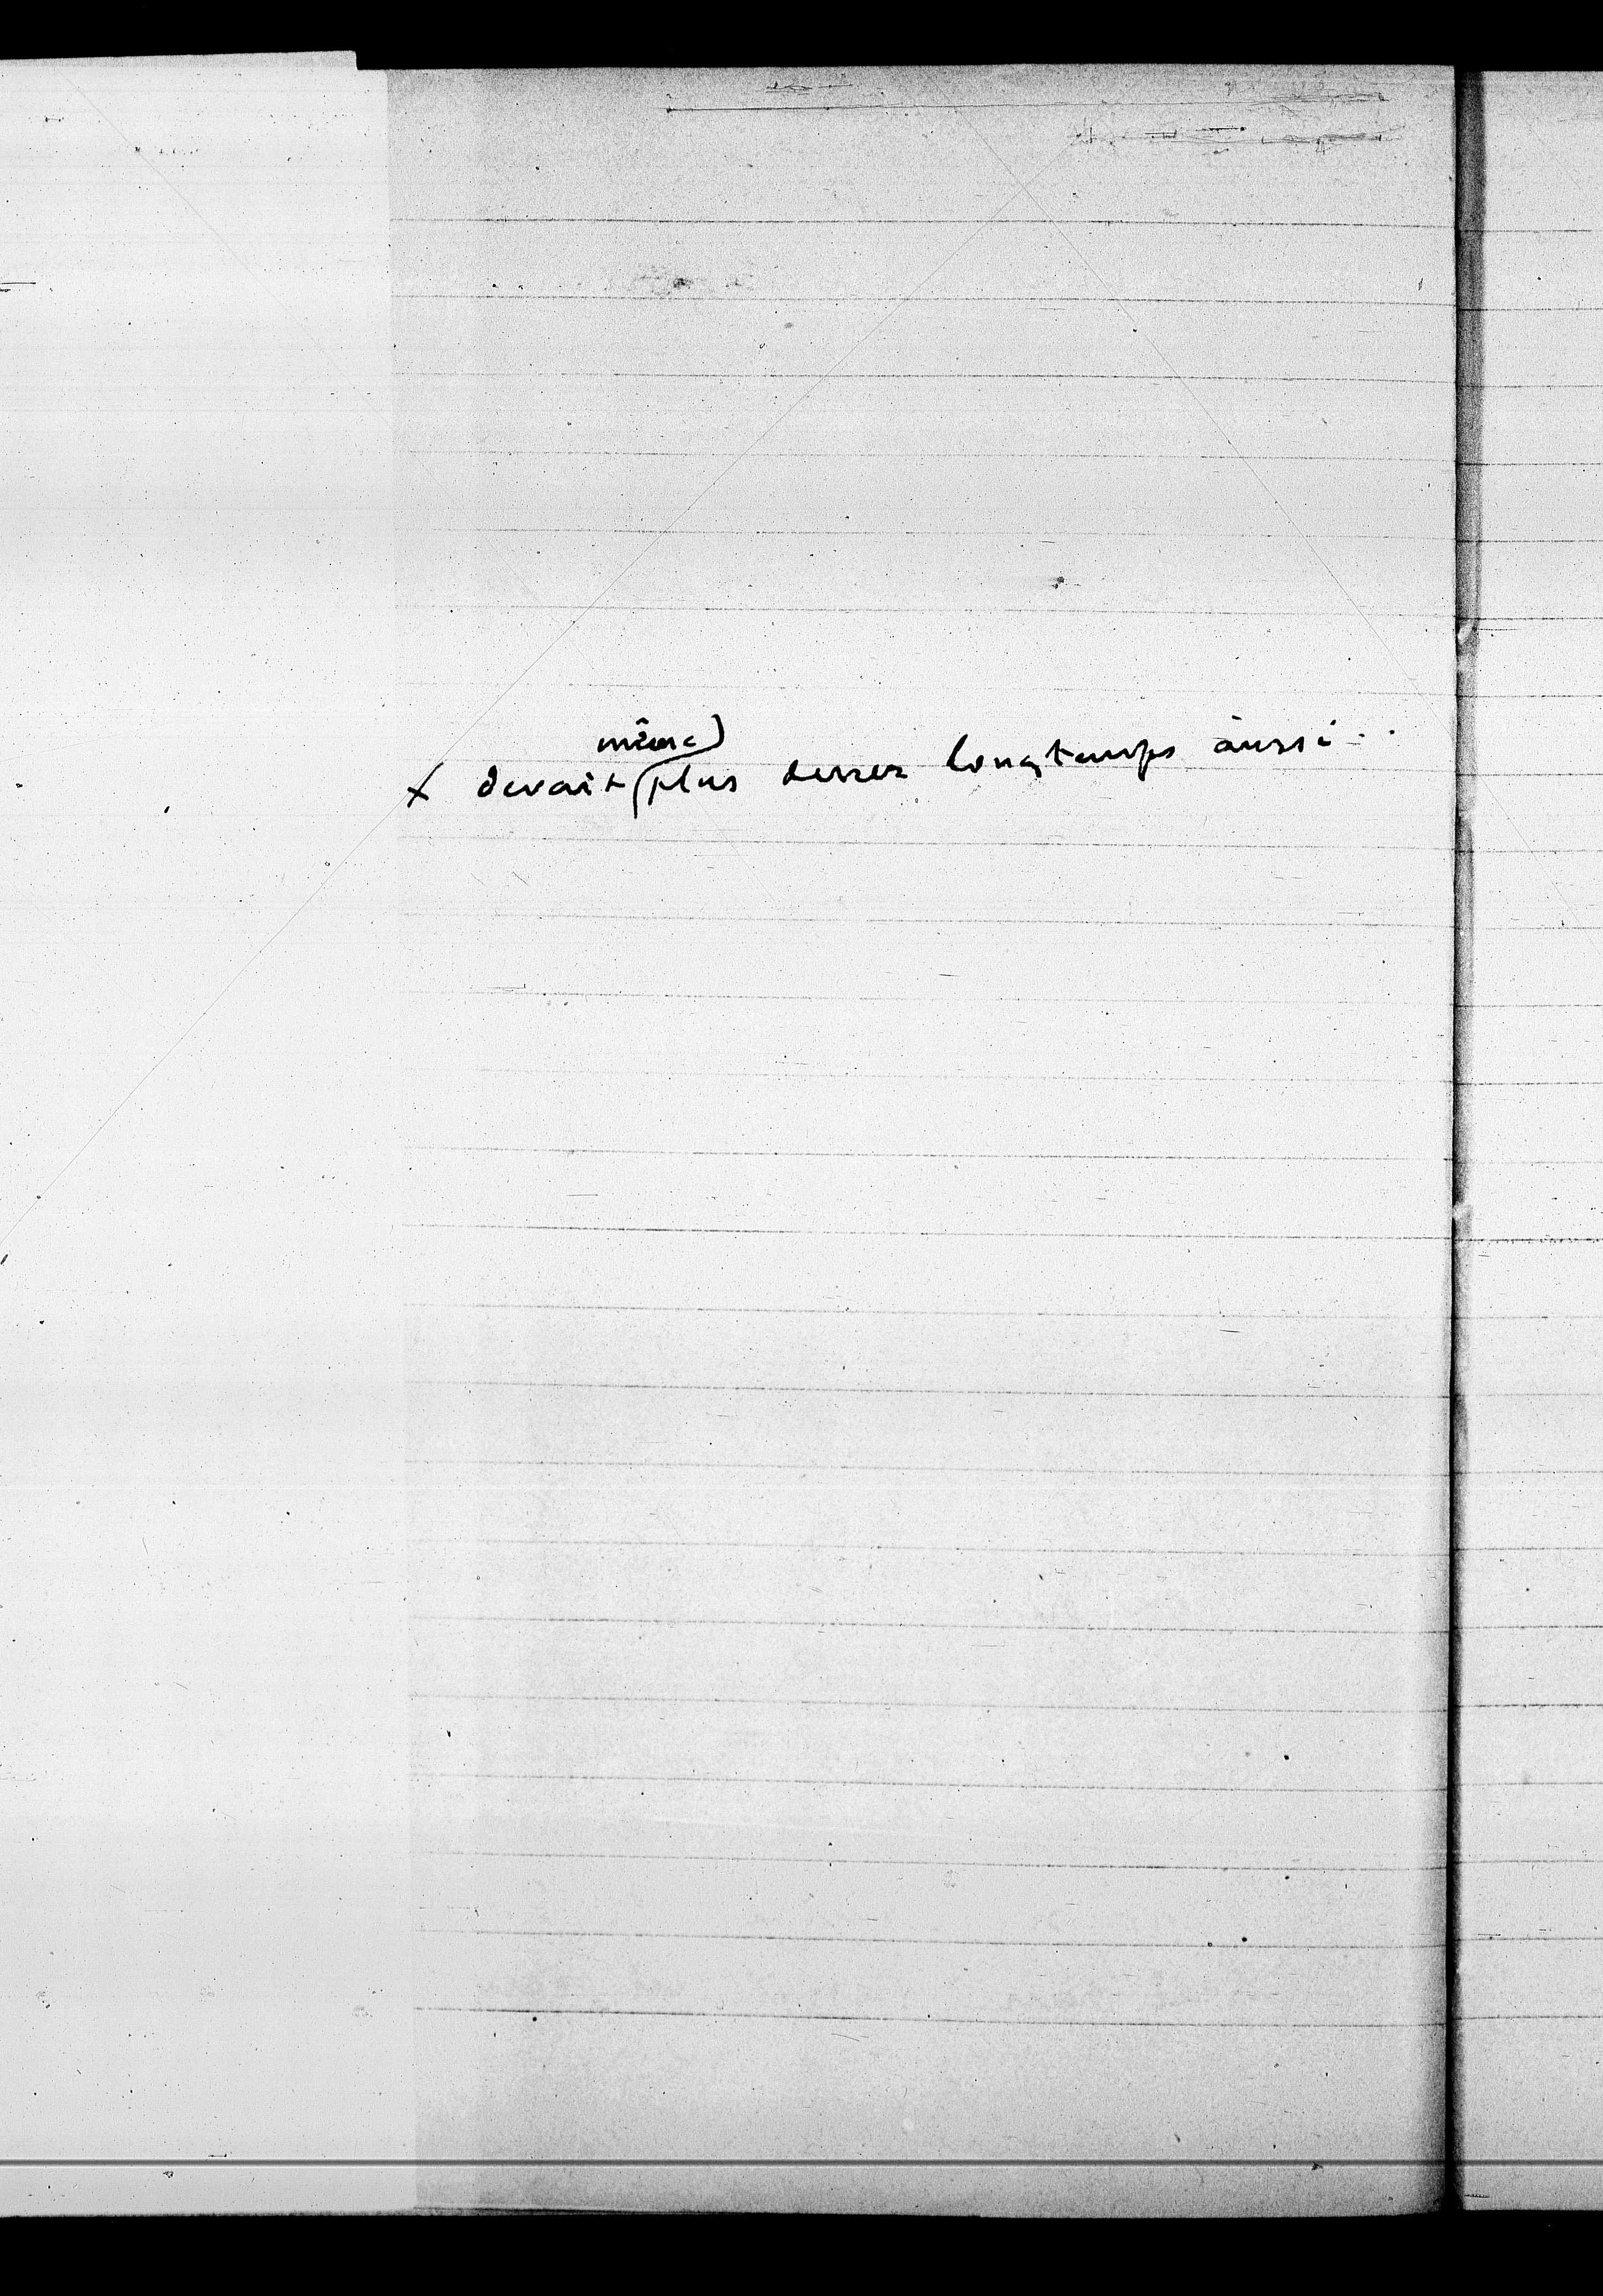 même
x devait plus durer longtemps aussi..